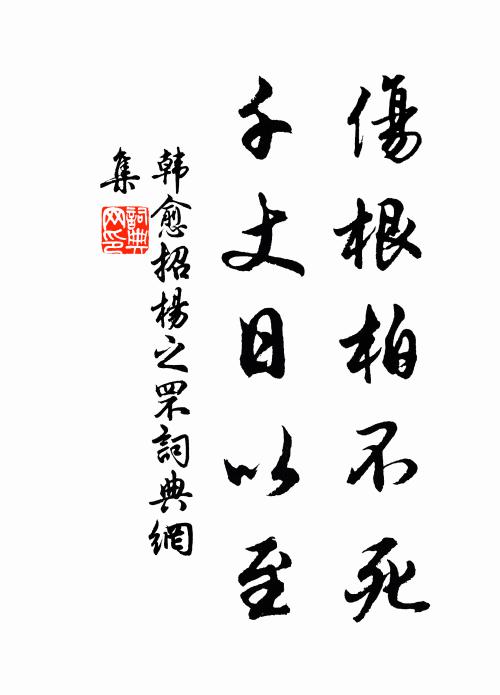 傷根柏不死
千丈日以至
韩愈招楊之罘詞典網
集
詞典网印